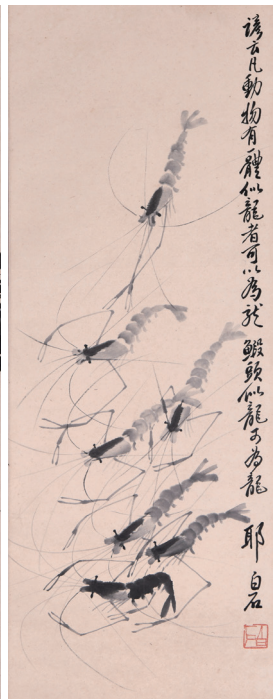 諺云凡動物有一體似龍者可以為龍鰕頭似龍可為龍耶白石